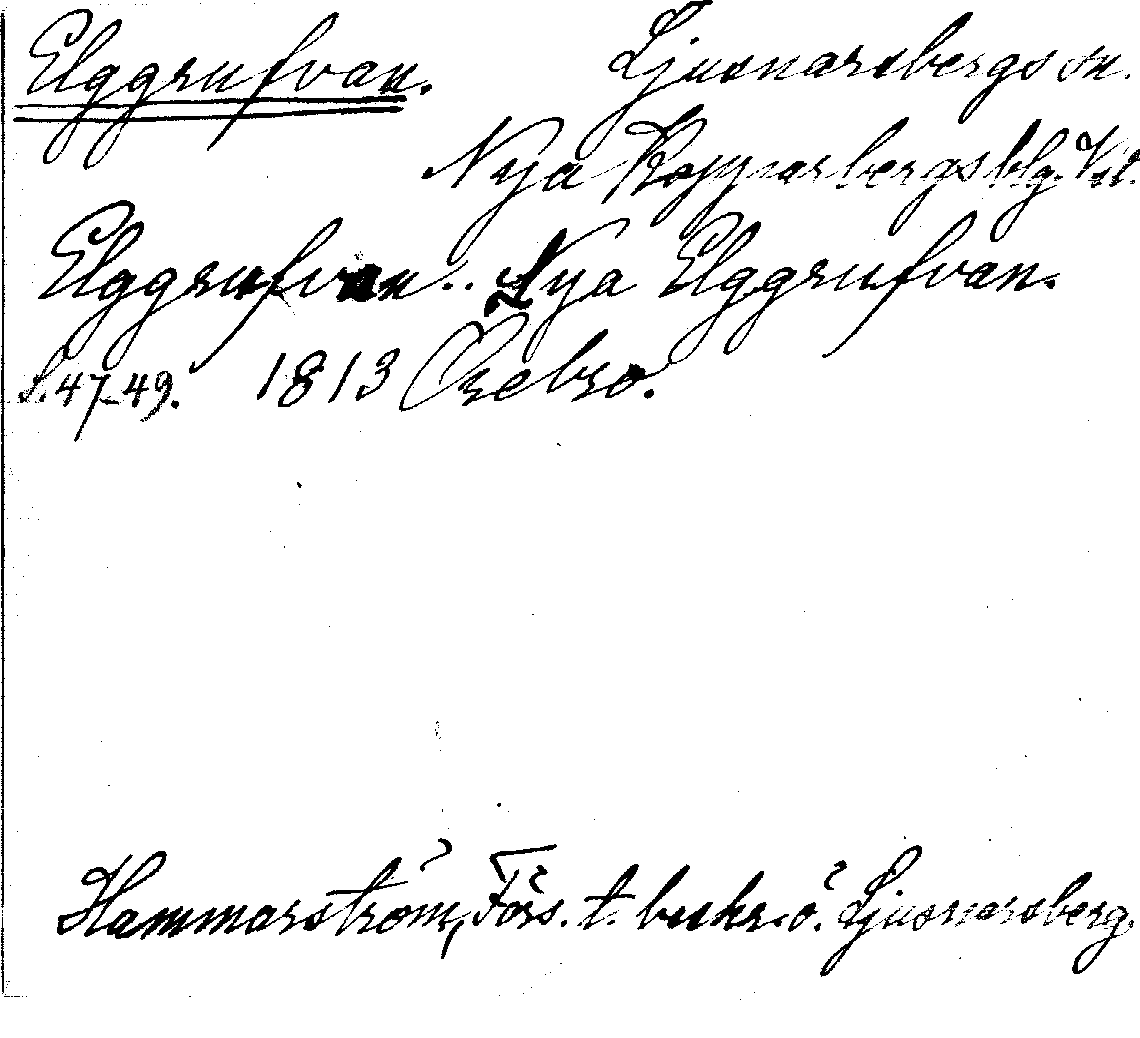 Elggrufvan. Ljusnarsbergs sn.
Nya Kopparbergs blg. Vst.
Elggrufvan.. Nya Elggrufvan.
s. 47-49. 1813 Örebro.
Hammarström, Förs. t. beskr. ö. Ljusnarsberg.